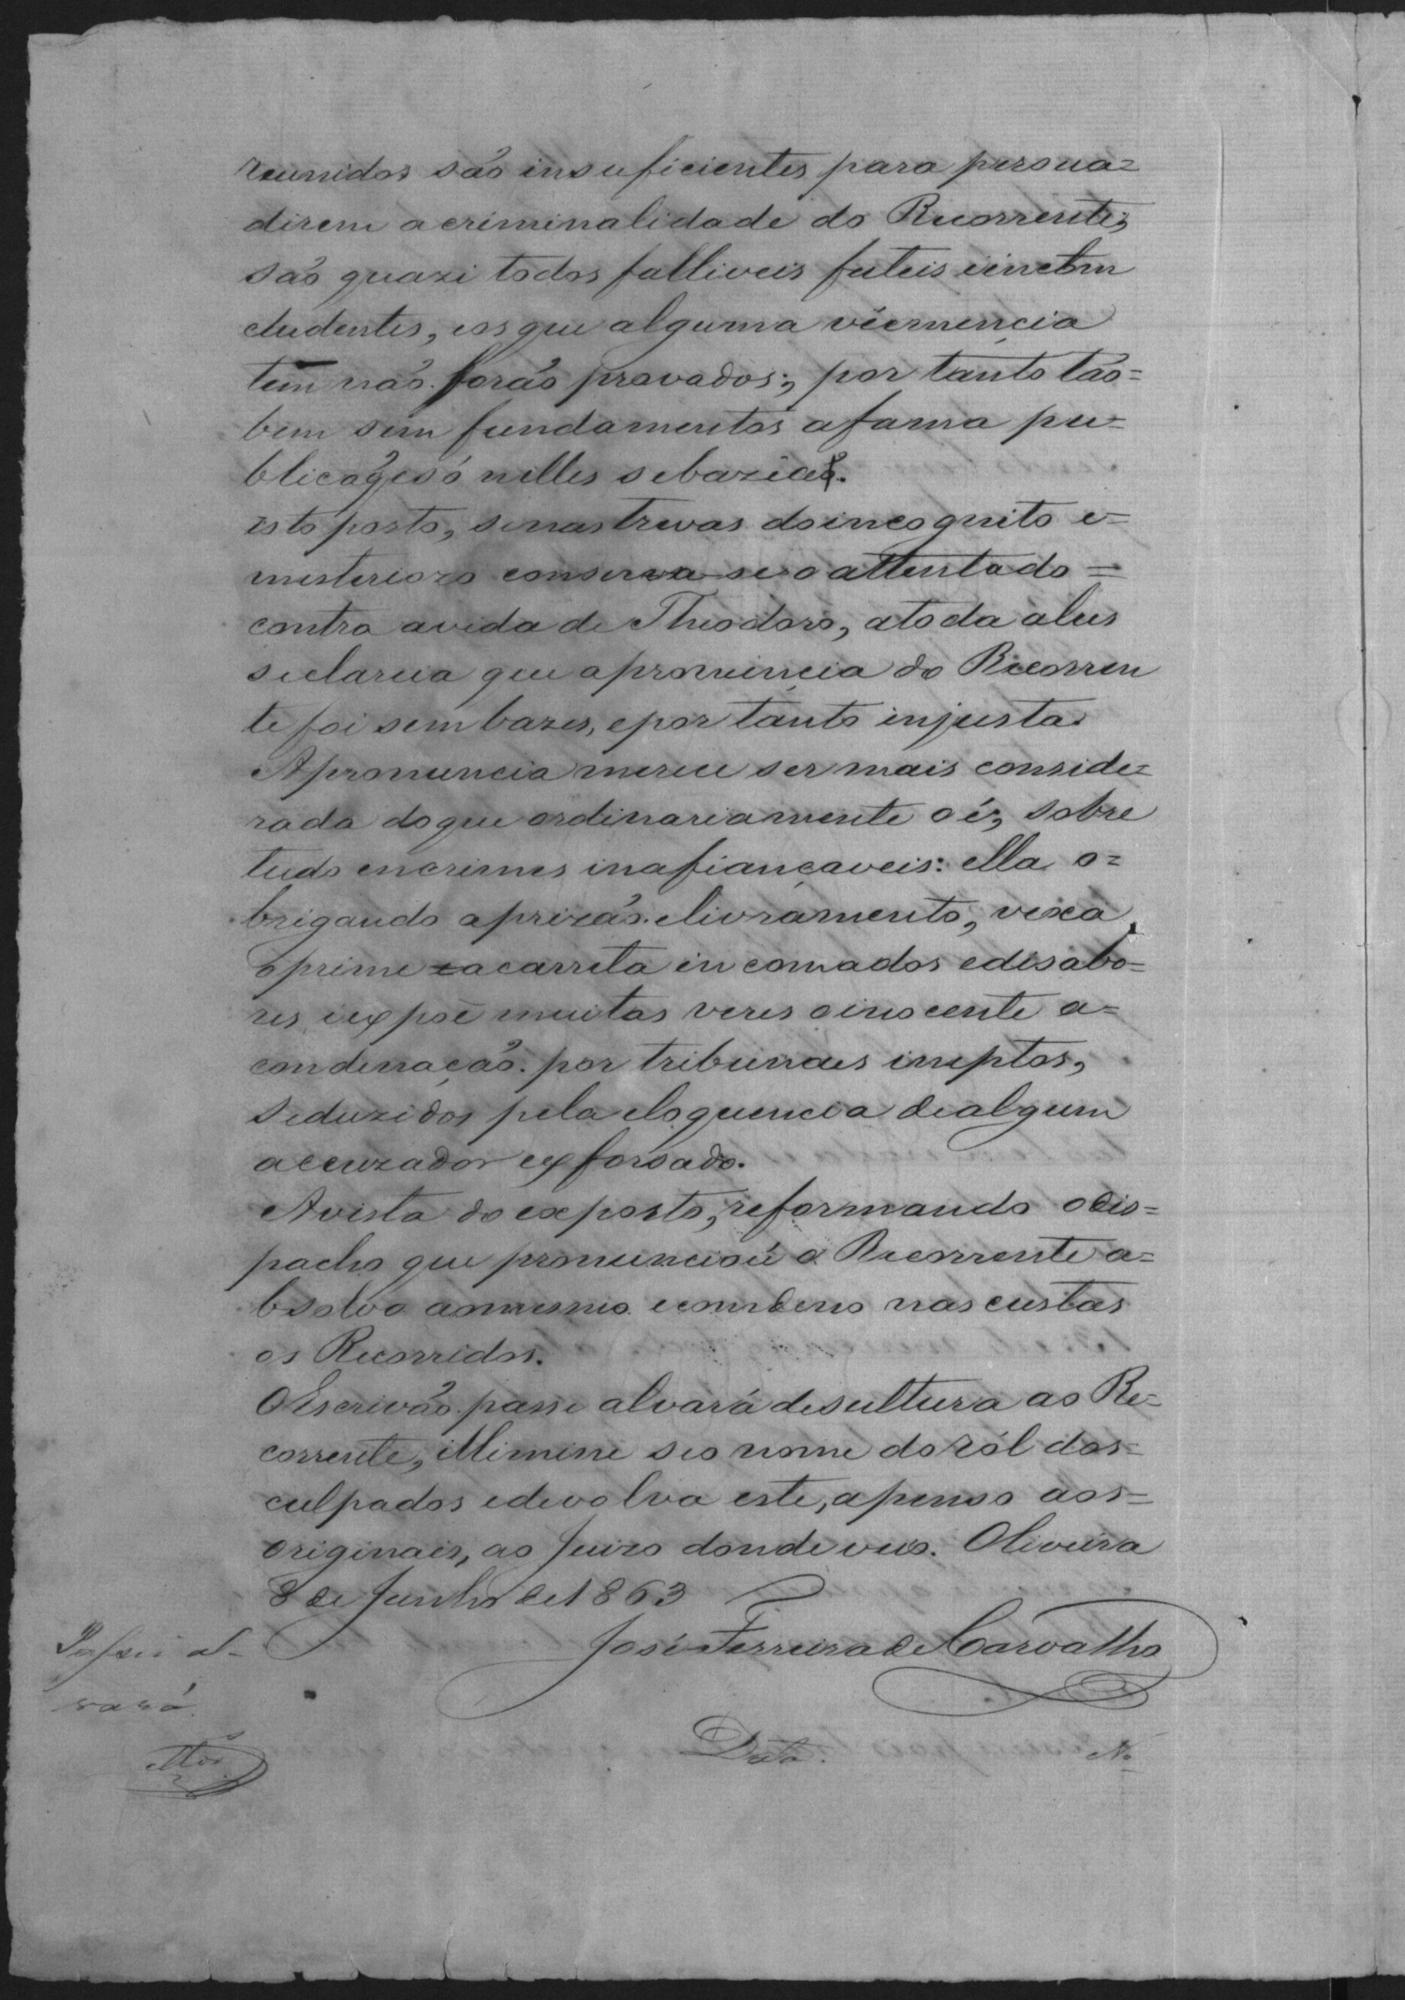 reunidos são insuficientes para persua=
direm a criminalidade do Recorrente;
são quazi todos falliveis futeis e incon
cludentes, e os que alguma véemencia
tem não forão provados; por tanto tão=
bem sem fundamentos a fama pu=
blica q̃ só nelles se bazêa.
Isto posto, se nas trevas do incognito e=
misterioso conserva-se o attentado=
contra a vida de Theodoro, a toda a lus
se clarea que a pronuncia do Recorren
te foi sem bazes, e por tanto injusta.
A pronuncia merece ser mais conside=
rada do que ordinariamente o é; sobre
tudo em crimes inafiançaveis: ella o=
brigando a prizão e livramento, vexa,
oprime acarreta incomados e disabo=
res e expoẽ muitas veses o inocente a=
condenação por tribunaes ineptos,
seduzidos pela eloquencia de algum
accuzador exforsado.
A vista do exposto, reformando o dis=
pacho que pronunciou o Recorrente a=
bsolvo ao mesmo e condeno nas custas
os Recorridos.
O Escrivão passe alvará de sultura ao Re=
corrente, illimine seo nome do ról dos=
culpados e devolva este, apenso aos=
originais, ao Juizo donde veio. Oliveira
8 de Junho de 1863
José Ferreira de Carvalho
Passei al-
vará.
Data.